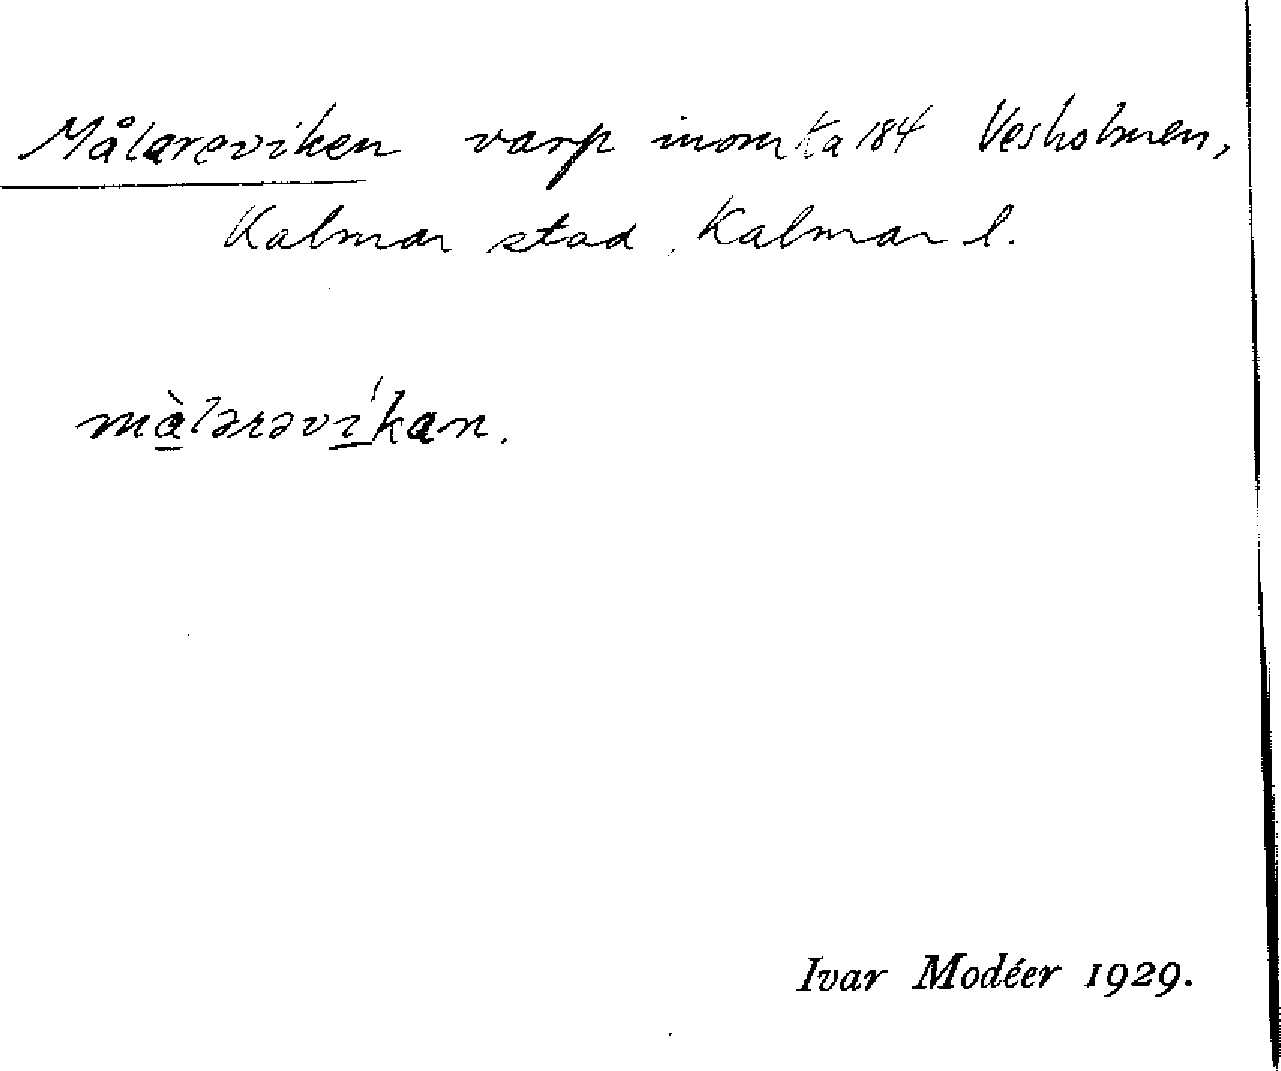 Målareviken varp inom ta 184 Vesholmen,
Kalmar stad, Kalmar l.
màlərəvíkan.
Ivar Modéer 1929.